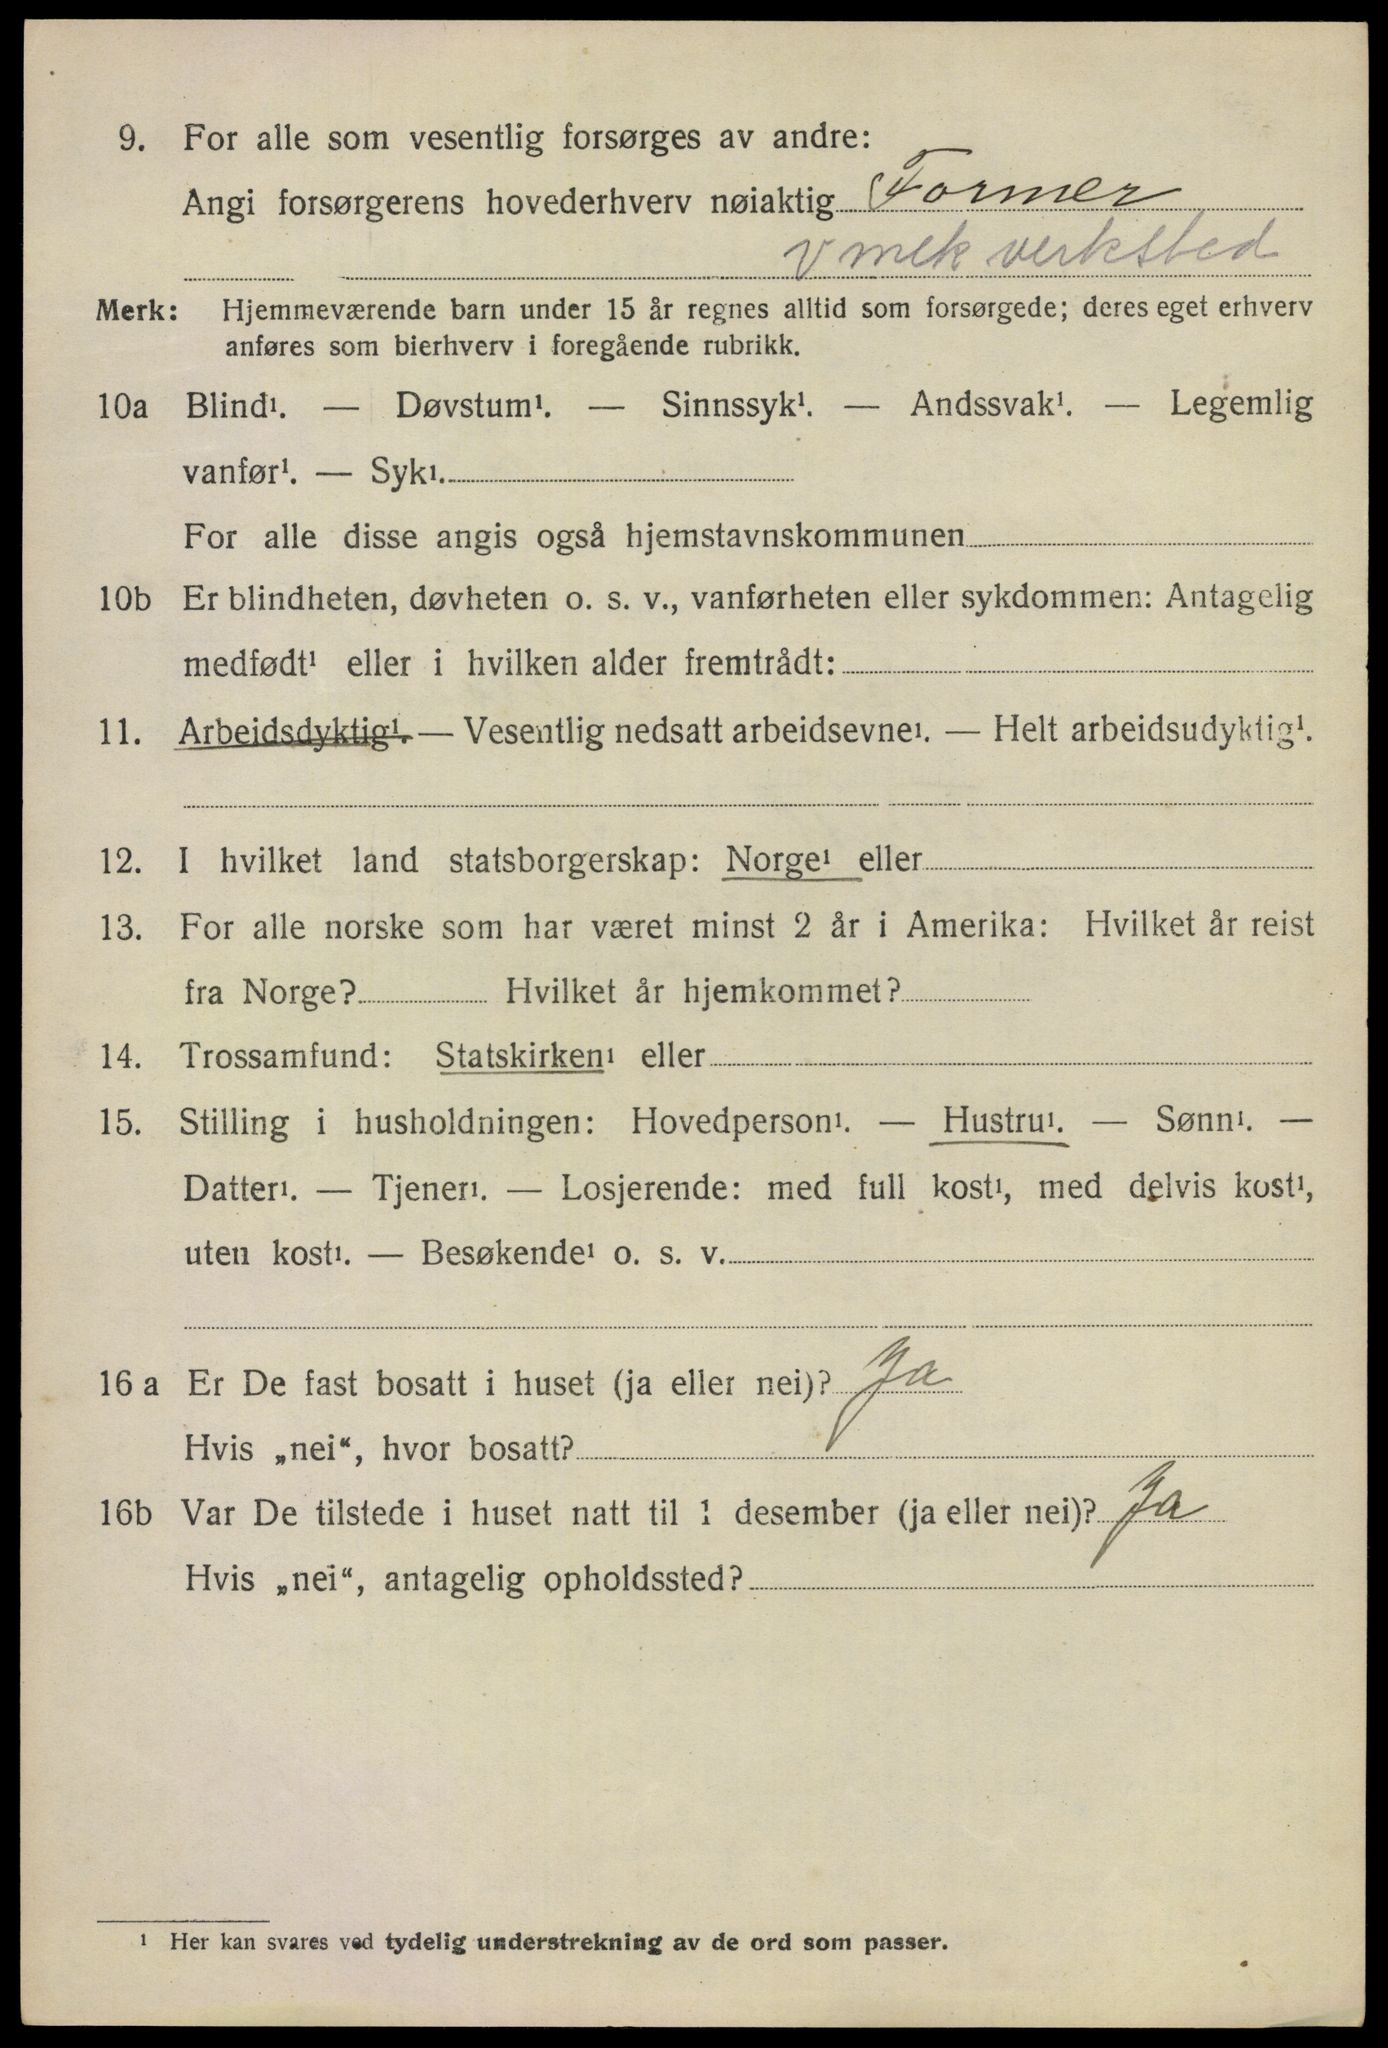 9. For alle som vesentlig forsørges av andre:
Angi forsørgerens hovederhverv nøiaktig Former
v mek verksted
Merk: Hjemmeværende barn under 15 år regnes alltid som forsørgede; deres eget erhverv
anføres som bierhverv i foregående rubrikk.
10a Blind¹. — Døvstum¹. — Sinnssyk¹. — Andssvak¹. — Legemlig
vanfør¹. — Syk¹.
For alle disse angis også hjemstavnskommunen
10b Er blindheten, døvheten o. s. v., vanførheten eller sykdommen: Antagelig
medfødt¹ eller i hvilken alder fremtrådt:
11. Arbeidsdyktig¹. — Vesentlig nedsatt arbeidsevne¹. — Helt arbeidsudyktig¹.
12. I hvilket land statsborgerskap: Norge¹ eller
13. For alle norske som har været minst 2 år i Amerika: Hvilket år reist
fra Norge? Hvilket år hjemkommet?
14. Trossamfund: Statskirken¹ eller
15. Stilling i husholdningen: Hovedperson¹. — Hustru¹. — Sønn¹. —
Datter¹. — Tjener¹. — Losjerende: med full kost¹, med delvis kost¹,
uten kost¹. — Besøkende¹ o. s. v.
16 a Er De fast bosatt i huset (ja eller nei)? Ja
Hvis „nei“, hvor bosatt?
16b Var De tilstede i huset natt til 1 desember (ja eller nei)? Ja
Hvis „nei“, antagelig opholdssted?
¹ Her kan svares ved tydelig understrekning av de ord som passer.